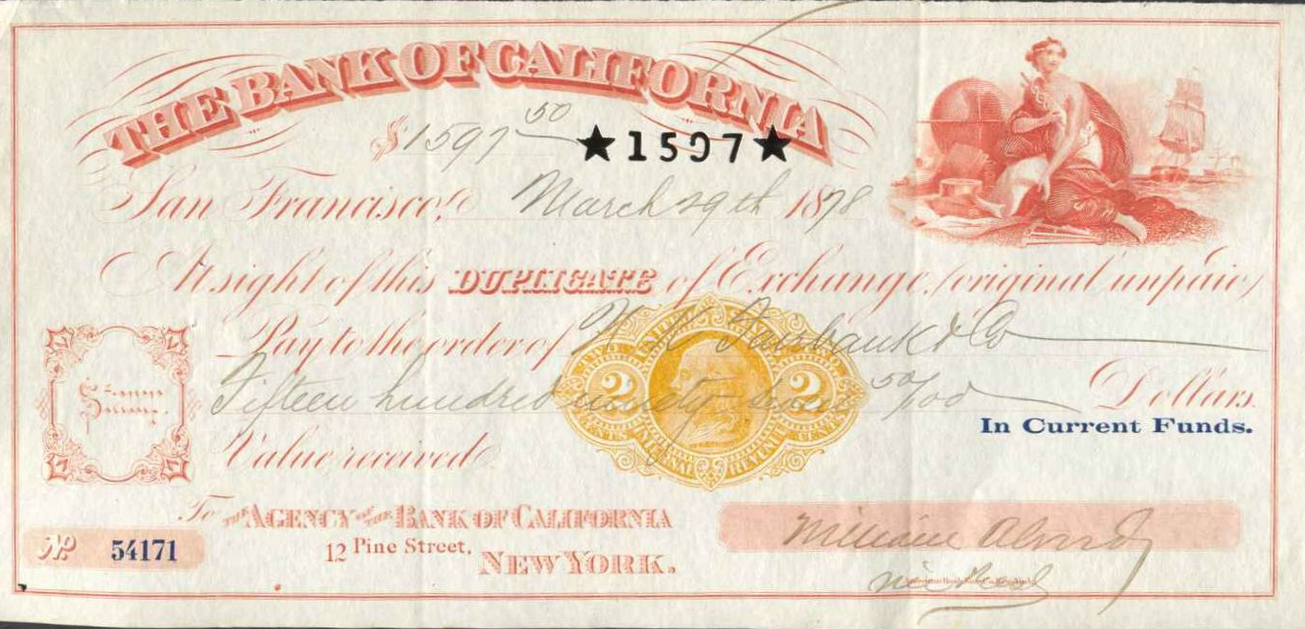 THE BANK OF CALIFORNIA
$1597 50 ★1597★
San Francisco, March 29th 1878
At sight of this DUPLICATE of Exchange, (original unpaid)
Pay to the order of N K Fairbank & Co
Fifteen hundred ninety seven 50/100 Dollars.
In Current Funds.
2 2
CENTS INTERNAL REVENUE CENTS
Stamp
Value received
To THE AGENCY OF THE BANK OF CALIFORNIA
12 Pine Street,
NEW YORK.
No 54171
William Alvord